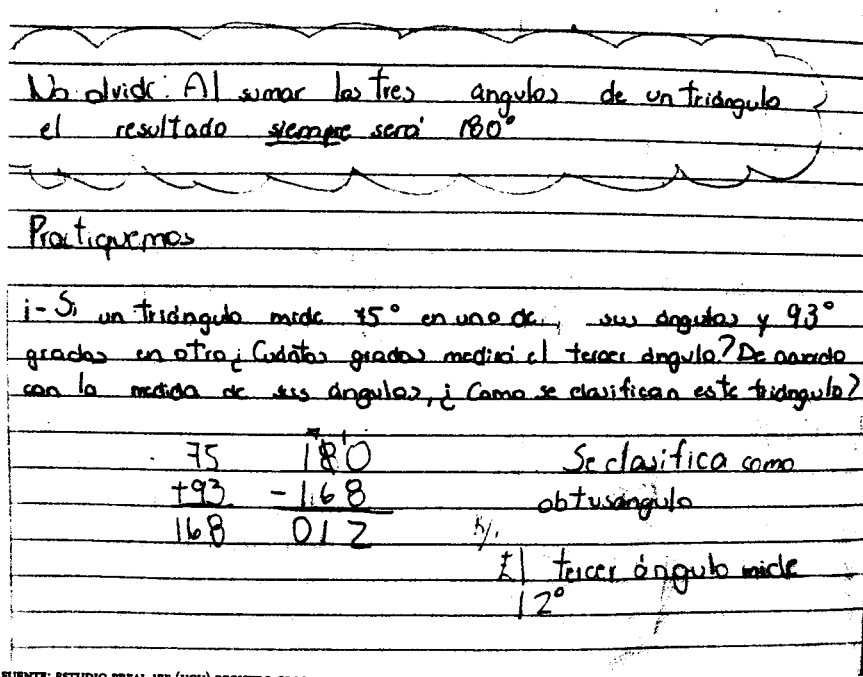 No olvide: Al sumar los tres angulos de un triángulo
el resultado siempre será 180°
Practiquemos
1- Si un triángulo mide 75° en uno de sus ángulos y 93°
grados en otro ¿Cuántos grados medirá el tercer ángulo? De acuerdo
con la medida de sus ángulos, ¿Como se clasifican este triángulo?
75 180 Se clasifica como
+93 -168 obtusángulo
168 012 R/.
El tercer ángulo mide
12°
FUENTE: